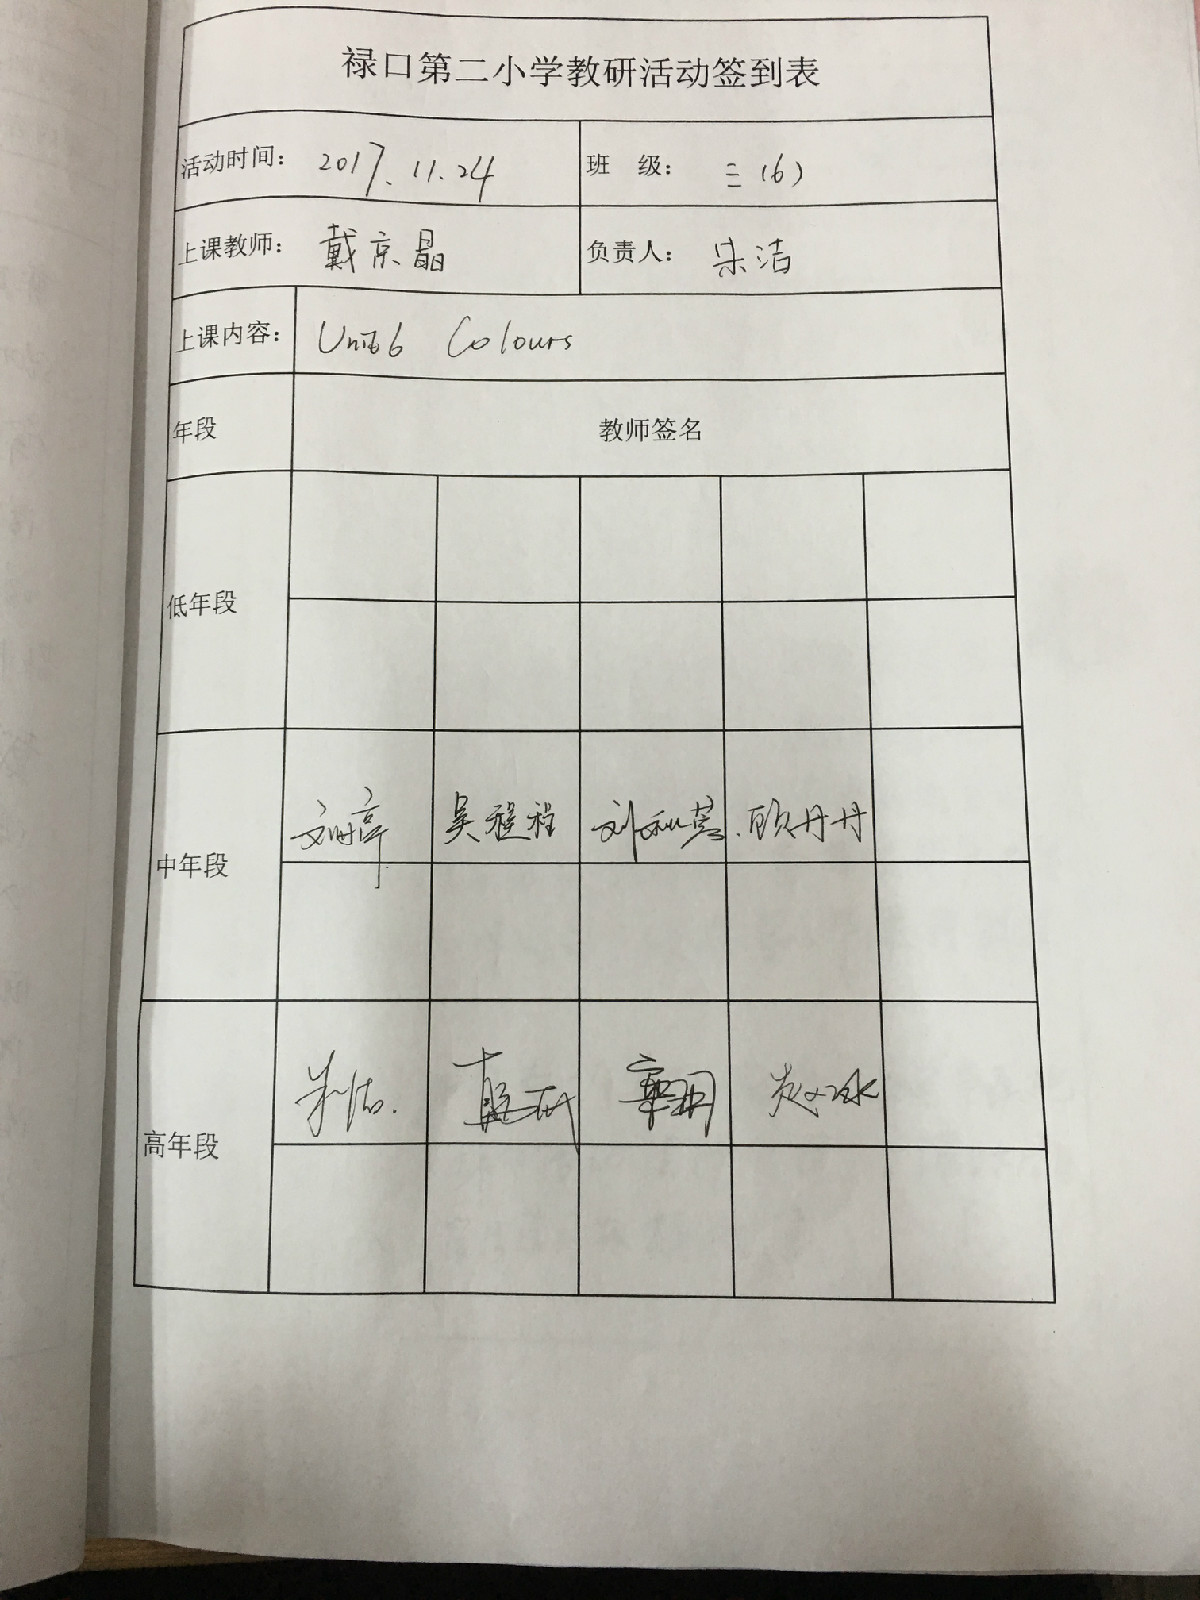 禄口第二小学教研活动签到表
活动时间： 2017.11.24 班 级： 三（6）
上课教师： 戴京晶 负责人： 朱洁
上课内容： Unit6 Colours
年段 教师签名
低年段
吴程程 顾丹丹
中年段
朱洁.
高年段